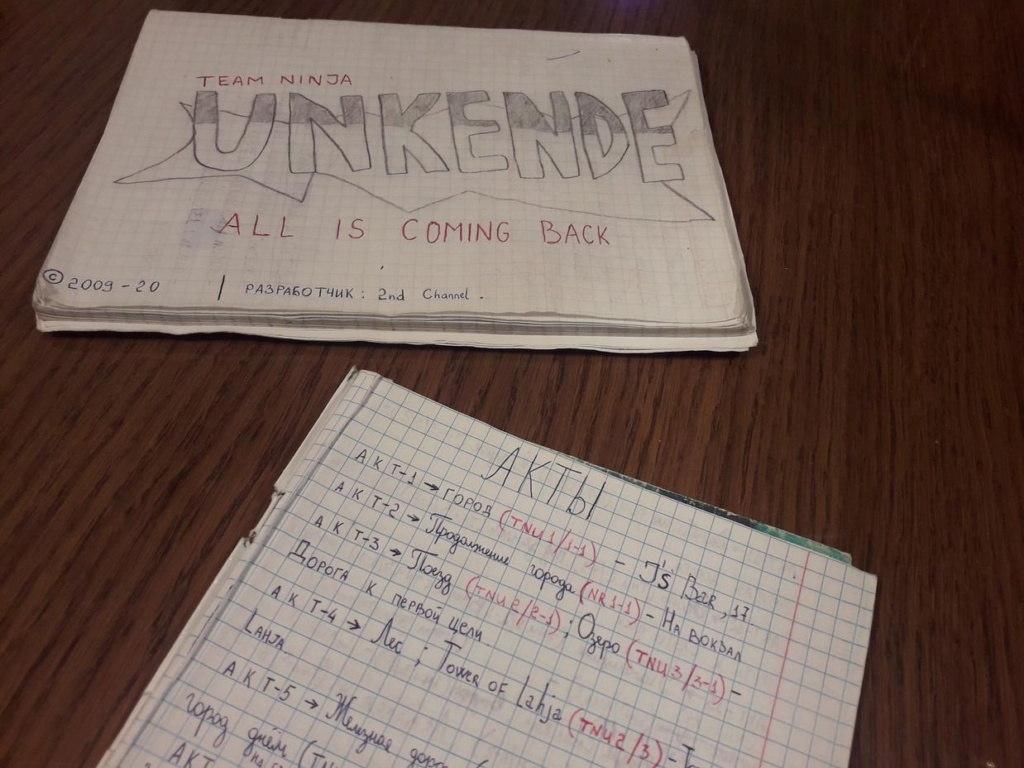 TEAM NINJA
UNKENDE
ALL IS COMING BACK
© 2009 - 20 | РАЗРАБОТЧИК: 2nd Channel.
АКТЫ
АКТ-1 → ГОРОД (TNU1/1-1) - J'S BAR, 17
АКТ-2 → Продолжение города (NR1-1) - НА ВОКЗАЛ
АКТ-3 → Поезд (TNU2/2-1); Озеро (TNU3/3-1) -
ДОРОГА К ПЕРВОЙ ЦЕЛИ
АКТ-4 → Лес; TOWER OF Lahja (TNU2/3) -
LAHJA
АКТ-5 → Железная
город днём (TNU
АКТ